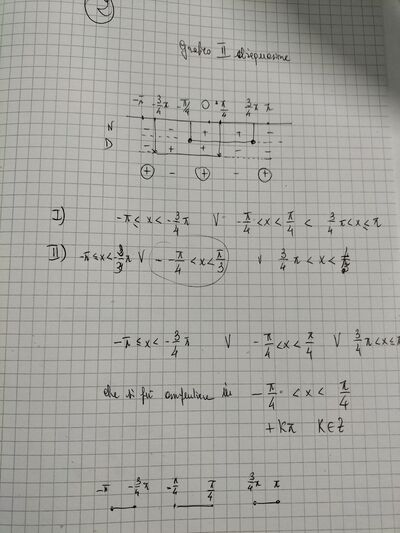 2
grafico II disequazione
-π -3/4π -π/4 0 π/4 3/4π π
N - - - + + -
D - + + -
+ - + - +
I) -π ≤ x < -3/4 π V -π/4 < x < π/4 < 3/4 π < x ≤ π
II) -π ≤ x < -3/4 π V - -π/4 < x < π/3 V 3/4 π < x <
-π ≤ x < -3/4 π V -π/4 < x < π/4 V 3/4 π < x ≤ π
che si può compattare in -π/4 < x < π/4
+ Kπ K ∈ Z
-π -3/4π -π/4 π/4 3/4π π